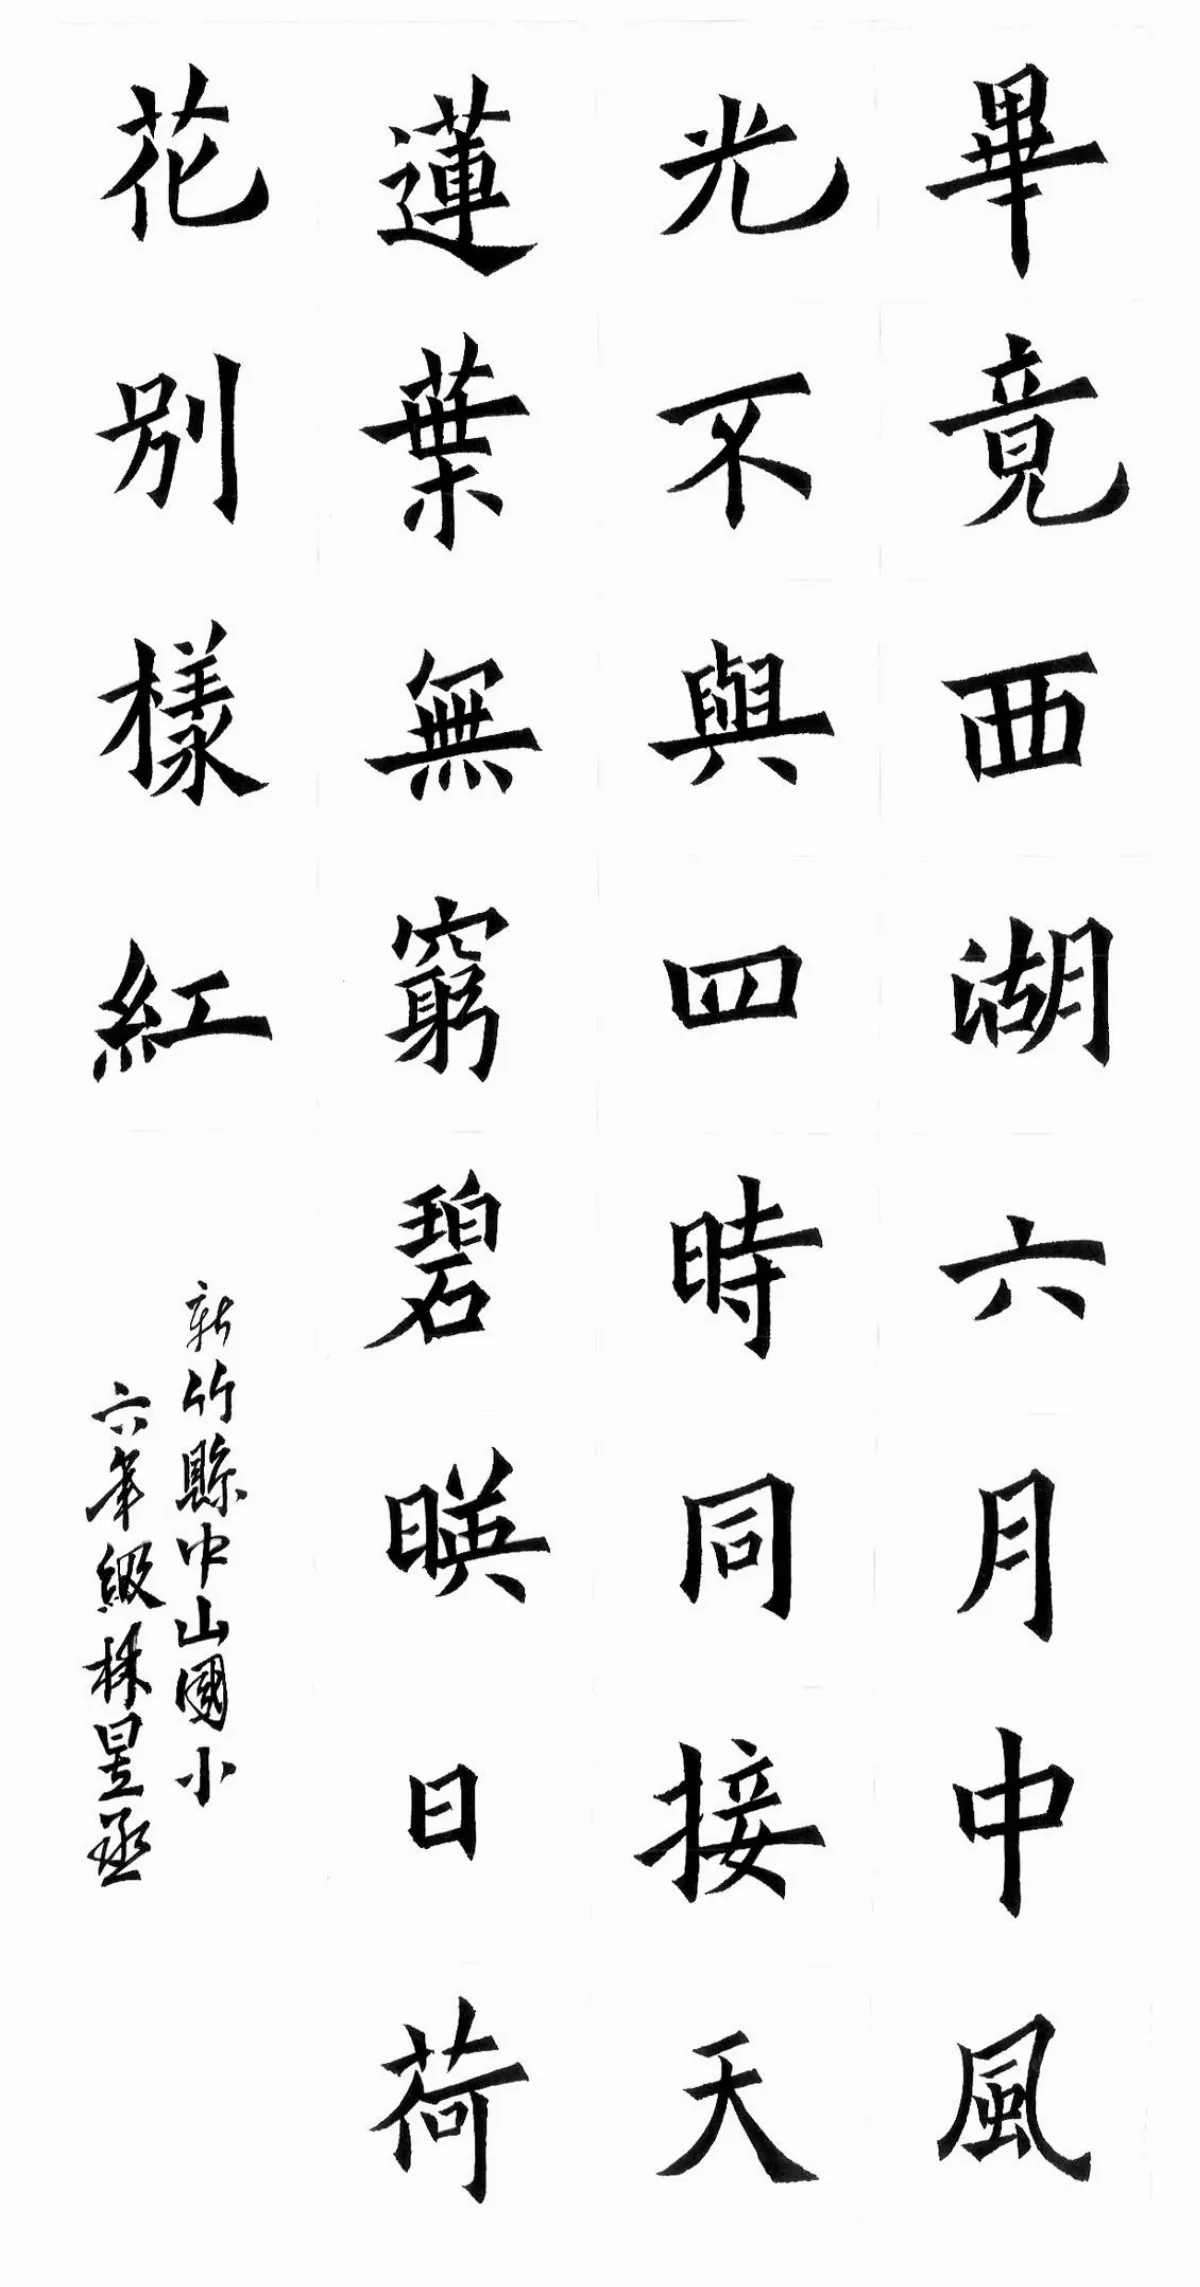 畢竟西湖六月中風
光不與四時同接天
蓮葉無窮碧暎日荷
花別樣紅
新竹縣中山國小
六年級林昱丞